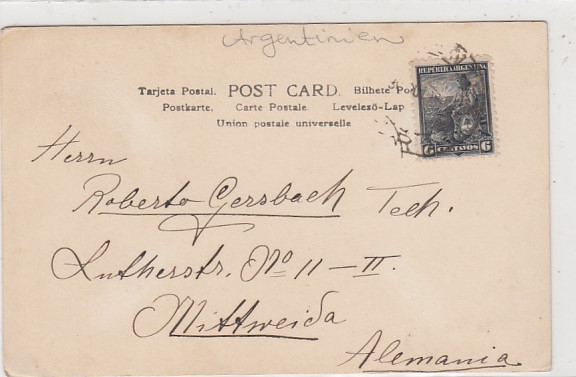 Argentinien
Tarjeta Postal. POST CARD. Bilhete Pos
Postkarte. Carte Postale. Levelezö-Lap
Union postale universelle
REPUBLICA ARGENTINA
6 CENTAVOS 6
Herrn
Roberto Gersbach Tech.
Lutherstr. No 11 – II.
Mittweida
Alemania